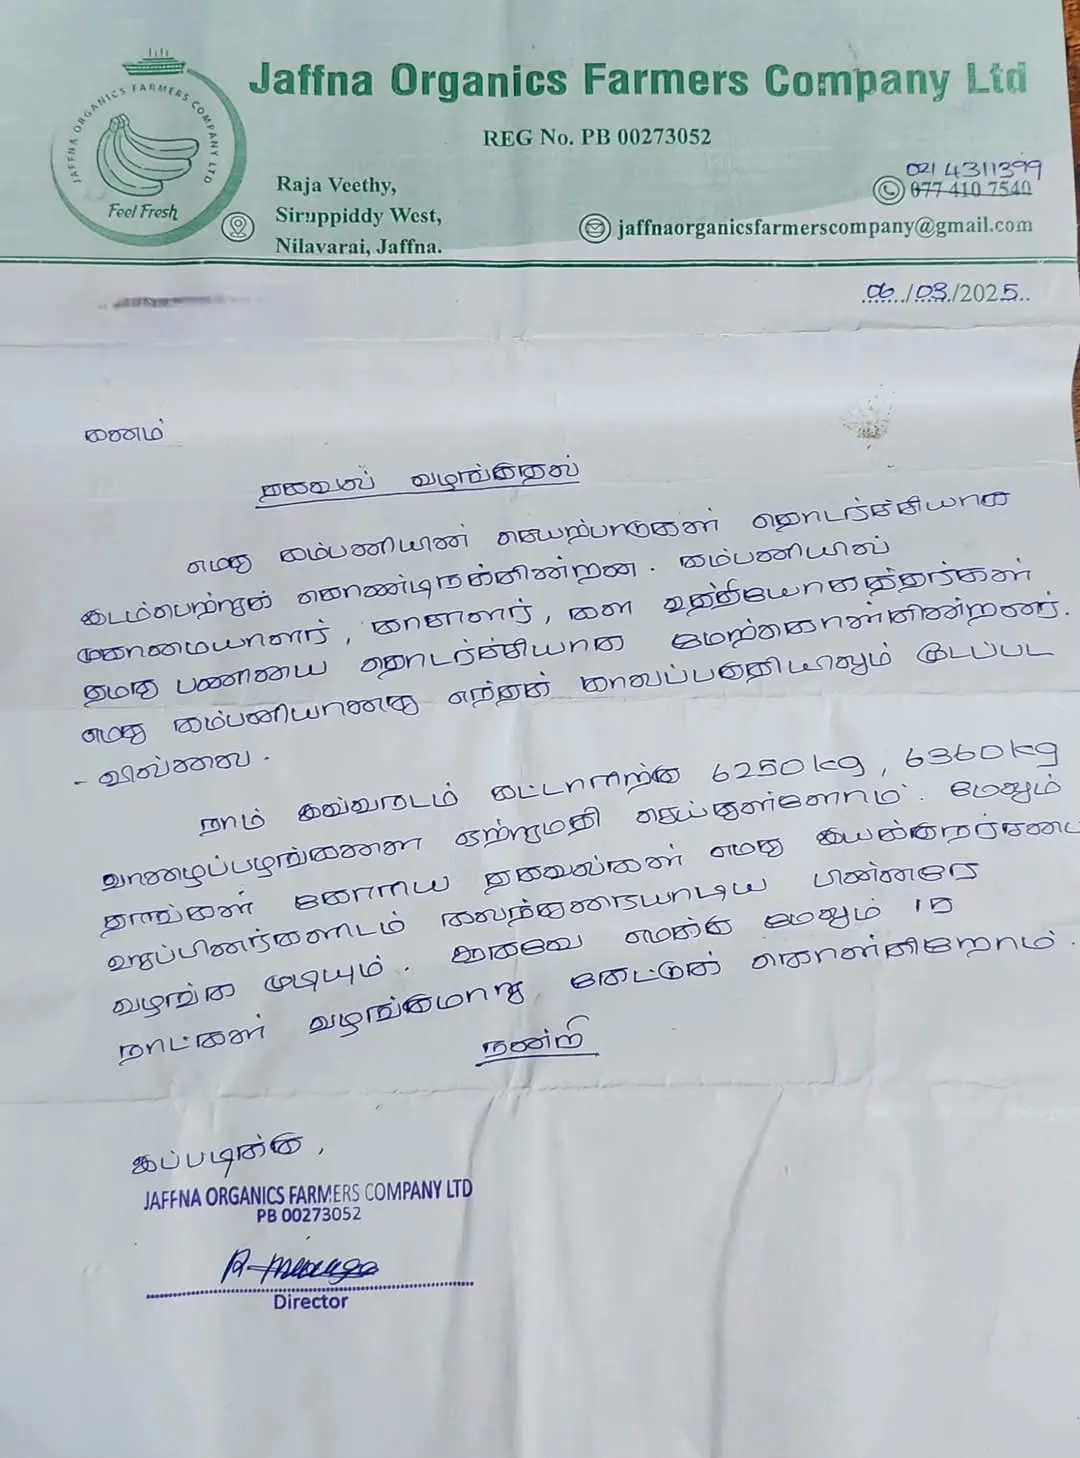 Jaffna Organics Farmers Company Ltd
REG No. PB 00273052
JAFFNA ORGANICS FARMERS COMPANY LTD
Feel Fresh
Raja Veethy,
Siruppiddy West,
Nilavarai, Jaffna.
021 4311399
077 410 7540
jaffnaorganicsfarmerscompany@gmail.com
06/03/2025
கனம்
தகவல் வழங்குதல்
எமது கம்பனியின் செயற்பாடுகள் தொடர்ச்சியாக
இடம்பெற்றுக் கொண்டிருக்கின்றன. கம்பனியில்
முகாமையாளர், காசாளர், கள உத்தியோகத்தர்கள்
தமது பணியை தொடர்ச்சியாக மேற்கொள்கின்றனர்.
எமது கம்பனியானது எந்தக் காலப்பகுதியிலும் மூடப்பட
- வில்லை.
நாம் இவ்வருடம் கட்டாருக்கு 6250kg, 6360kg
வாழைப்பழங்களை ஏற்றுமதி செய்துள்ளோம். மேலும்
தாங்கள் கோரிய தகவல்கள் எமது இயக்குநர்சபை
உறுப்பினர்களுடம் கலந்துரையாடிய பின்னரே
வழங்க முடியும். ஆகவே எமக்கு மேலும்
நாட்கள் வழங்குமாறு கேட்டுக் கொள்கிறோம்.
நன்றி
இப்படிக்கு,
JAFFNA ORGANICS FARMERS COMPANY LTD
PB 00273052
Director